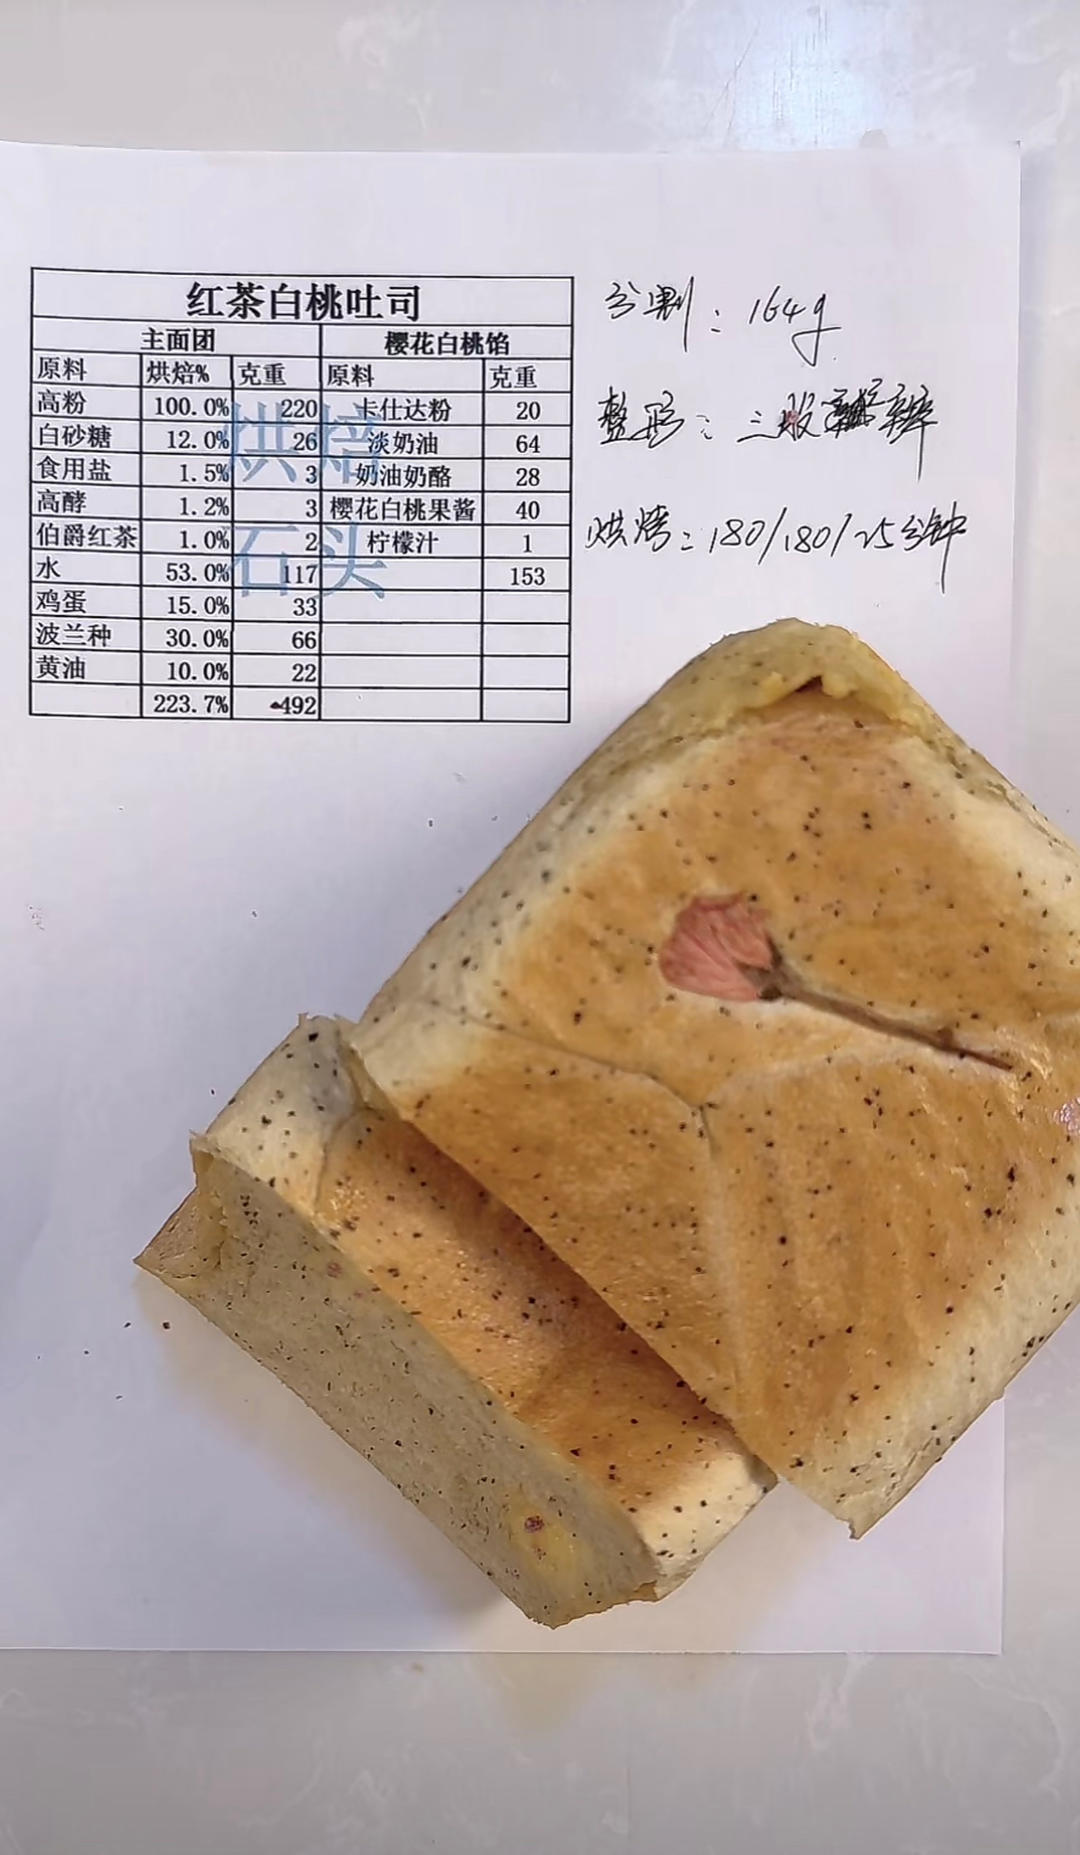 红茶白桃吐司
主面团 樱花白桃馅
原料 烘焙% 克重 原料 克重
高粉 100.0% 220 卡仕达粉 20
白砂糖 12.0% 26 淡奶油 64
食用盐 1.5% 3 奶油奶酪 28
高酵 1.2% 3 樱花白桃果酱 40
伯爵红茶 1.0% 2 柠檬汁 1
水 53.0% 117 153
鸡蛋 15.0% 33
波兰种 30.0% 66
黄油 10.0% 22
223.7% 492
烘焙
石头
分割：164g
整形：三股辫
烘烤：180/180/25分钟